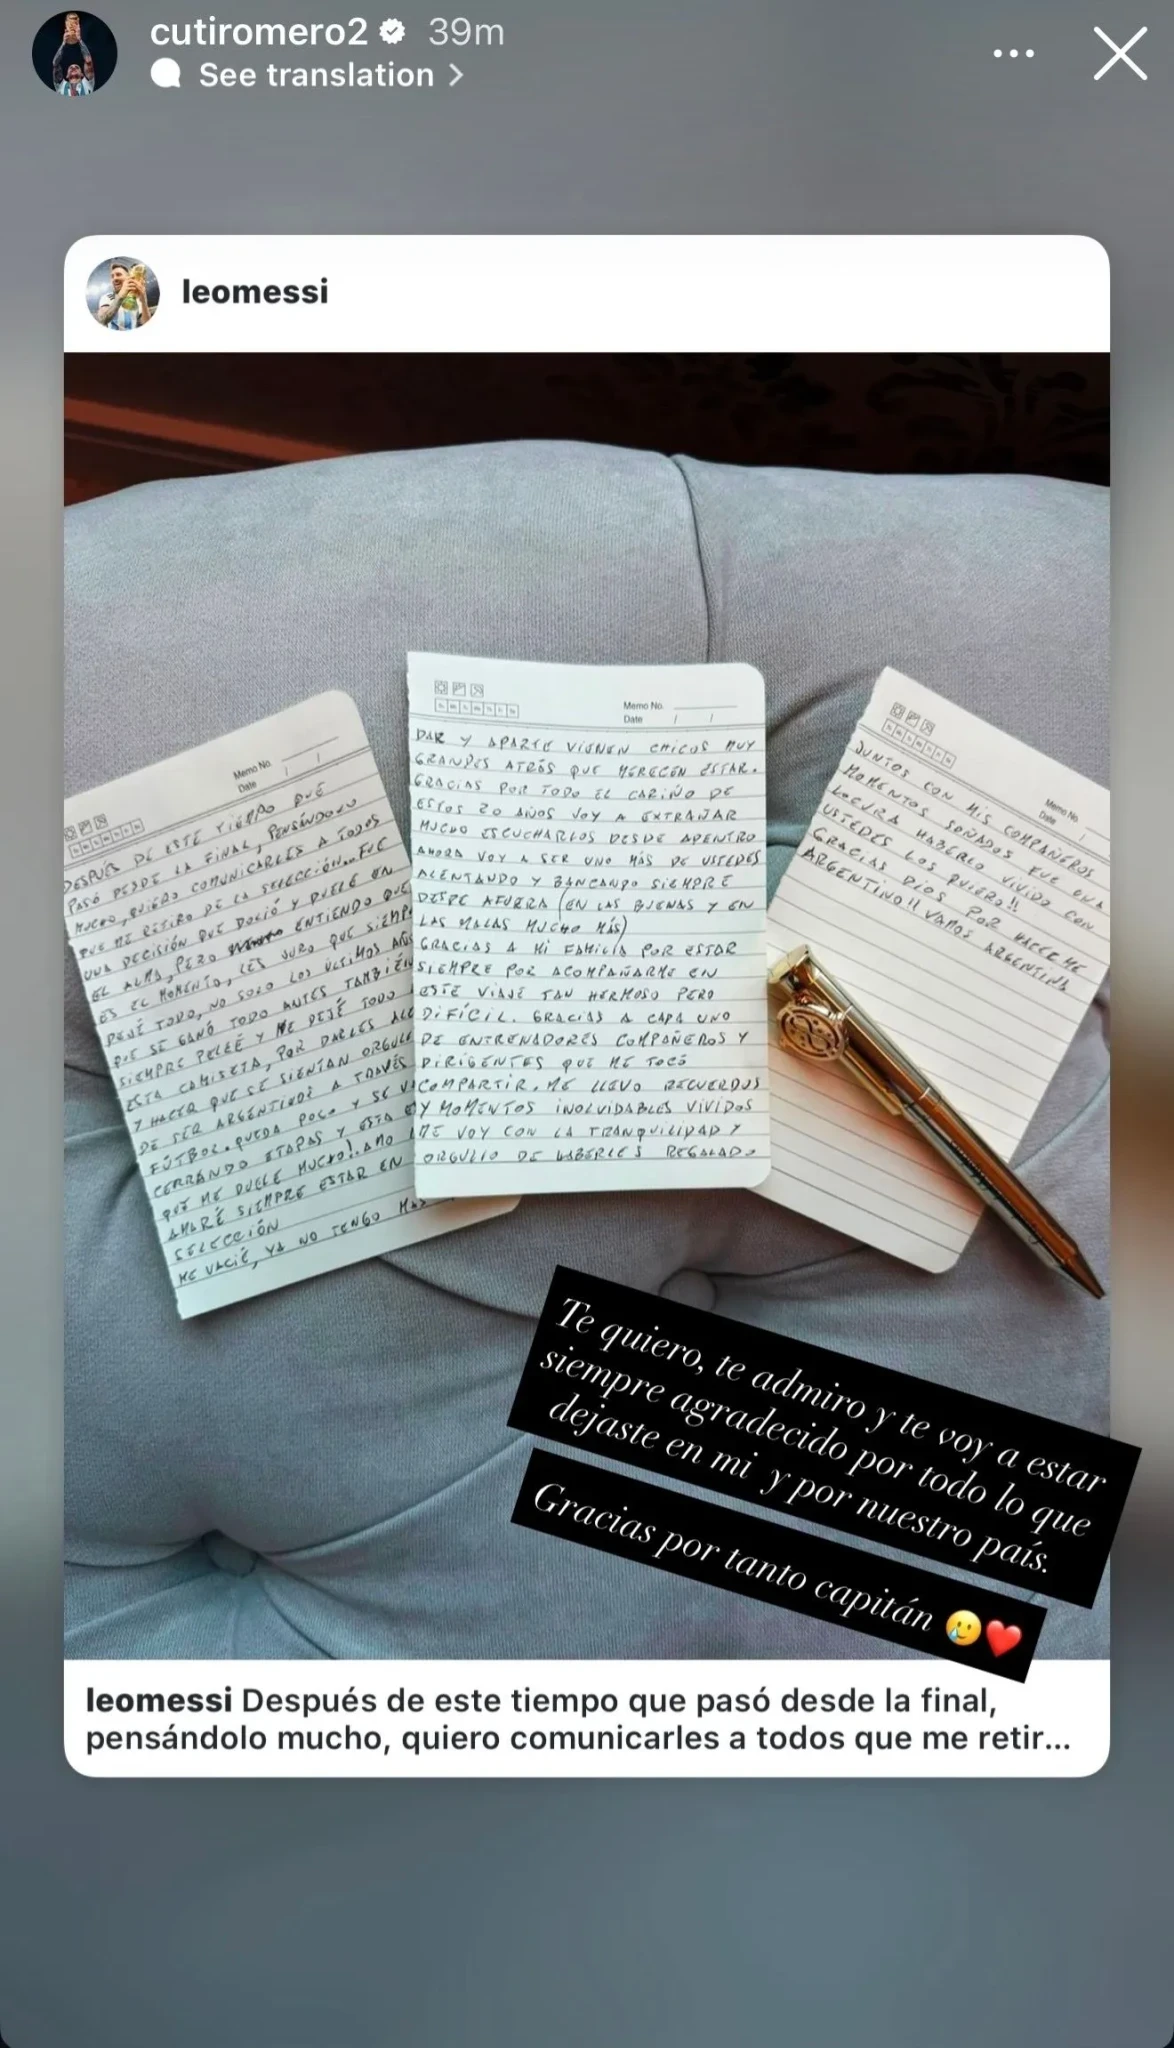 cutiromero2 39m
See translation >
leomessi
Memo No.
Date / /
DESPUÉS DE ESTE TIEMPO QUE
PASÓ DESDE LA FINAL, PENSÁNDOLO
MUCHO, QUIERO COMUNICARLES A TODOS
QUE ME RETIRO DE LA SELECCIÓN... FUE
UNA DECISIÓN QUE DOLIÓ Y DUELE EN
EL ALMA, PERO ENTIENDO QUE
ES EL MOMENTO, LES JURO QUE SIEMP
DEJÉ TODO, NO SOLO LOS ÚLTIMOS AÑ
QUE SE GANÓ TODO ANTES TAMBIÉN
SIEMPRE PELEÉ Y ME DEJÉ TODO
ESTA CAMISETA, POR DARLES ALE
Y HACER QUE SE SIENTAN ORGULL
DE SER ARGENTINOS A TRAVÉS
FÚTBOL. QUEDA POCO Y SE VA
CERRANDO ETAPAS Y ESTA
QUE ME DUELE MUCHO! AMO
AMARÉ SIEMPRE ESTAR EN
SELECCIÓN
ME VACIÉ, YA NO TENGO MAS
Memo No.
Date / /
DAR Y APARTE VIENEN CHICOS MUY
GRANDES ATRÁS QUE MERECEN ESTAR.
GRACIAS POR TODO EL CARIÑO DE
ESTOS 20 AÑOS VOY A EXTRAÑAR
MUCHO ESCUCHARLOS DESDE ADENTRO
AHORA VOY A SER UNO MÁS DE USTEDES
ALENTANDO Y BANCANDO SIEMPRE
DESDE AFUERA (EN LAS BUENAS Y EN
LAS MALAS MUCHO MÁS)
GRACIAS A MI FAMILIA POR ESTAR
SIEMPRE POR ACOMPAÑARME EN
ESTE VIAJE TAN HERMOSO PERO
DIFÍCIL. GRACIAS A CADA UNO
DE ENTRENADORES COMPAÑEROS Y
DIRIGENTES QUE ME TOCÓ
COMPARTIR. ME LLEVO RECUERDOS
Y MOMENTOS INOLVIDABLES VIVIDOS
ME VOY CON LA TRANQUILIDAD Y
ORGULLO DE HABERLES REGALADO
Memo No.
Date /
JUNTOS CON MIS COMPAÑEROS
MOMENTOS SOÑADOS FUE UNA
LOCURA HABERLO VIVIDO CON
USTEDES LOS QUIERO!!
GRACIAS DIOS POR HACERME
ARGENTINO!! VAMOS ARGENTINA
Te quiero, te admiro y te voy a estar
siempre agradecido por todo lo que
dejaste en mi y por nuestro país.
Gracias por tanto capitán 🥲❤️
leomessi Después de este tiempo que pasó desde la final,
pensándolo mucho, quiero comunicarles a todos que me retir...